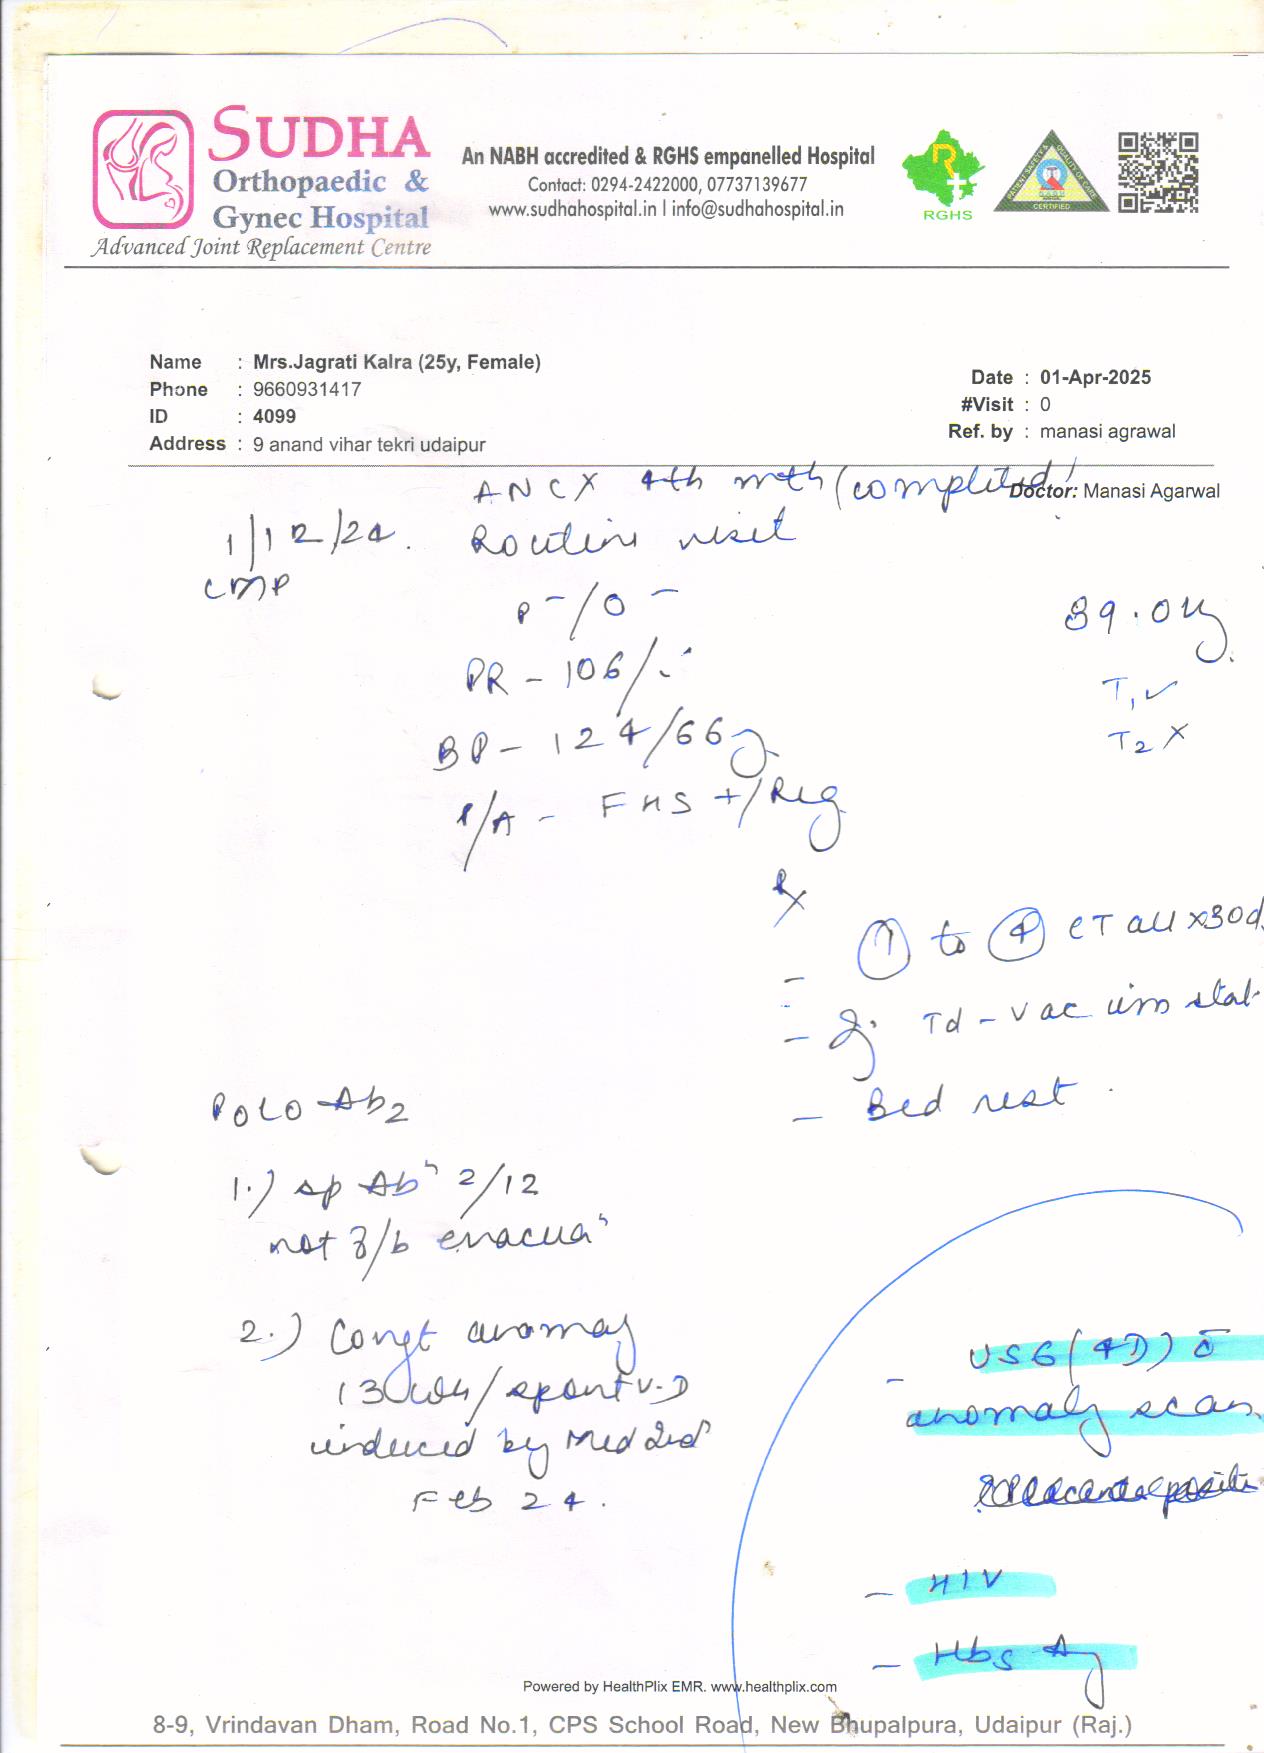 SUDHA
Orthopaedic &
Gynec Hospital
Advanced Joint Replacement Centre
An NABH accredited & RGHS empanelled Hospital
Contact: 0294-2422000, 07737139677
www.sudhahospital.in | info@sudhahospital.in
RGHS
CERTIFIED
Name : Mrs.Jagrati Kalra (25y, Female)
Phone : 9660931417
ID : 4099
Address : 9 anand vihar tekri udaipur
Date : 01-Apr-2025
#Visit : 0
Ref. by : manasi agrawal
Doctor: Manasi Agarwal
ANCX 4th mth (completed)
1/12/24. Routine visit
LMP
P-/O-
PR - 106/
BP - 124/66
P/A - FHS +/Reg
T1 ✓
T2 X
Rx
- 1 to 4 CT all x30d
- Td - vac im stat
- Bed rest
P0L0 Ab2
1.) sp Abn 2/12
not f/b evacuan
2.) Congt anomaly
13 wks / spont v.D
induced by Med
Feb 24.
- USG (4D) c̄
anomaly scan
- HIV
- Hbs Ag
Powered by HealthPlix EMR. www.healthplix.com
8-9, Vrindavan Dham, Road No.1, CPS School Road, New Bhupalpura, Udaipur (Raj.)